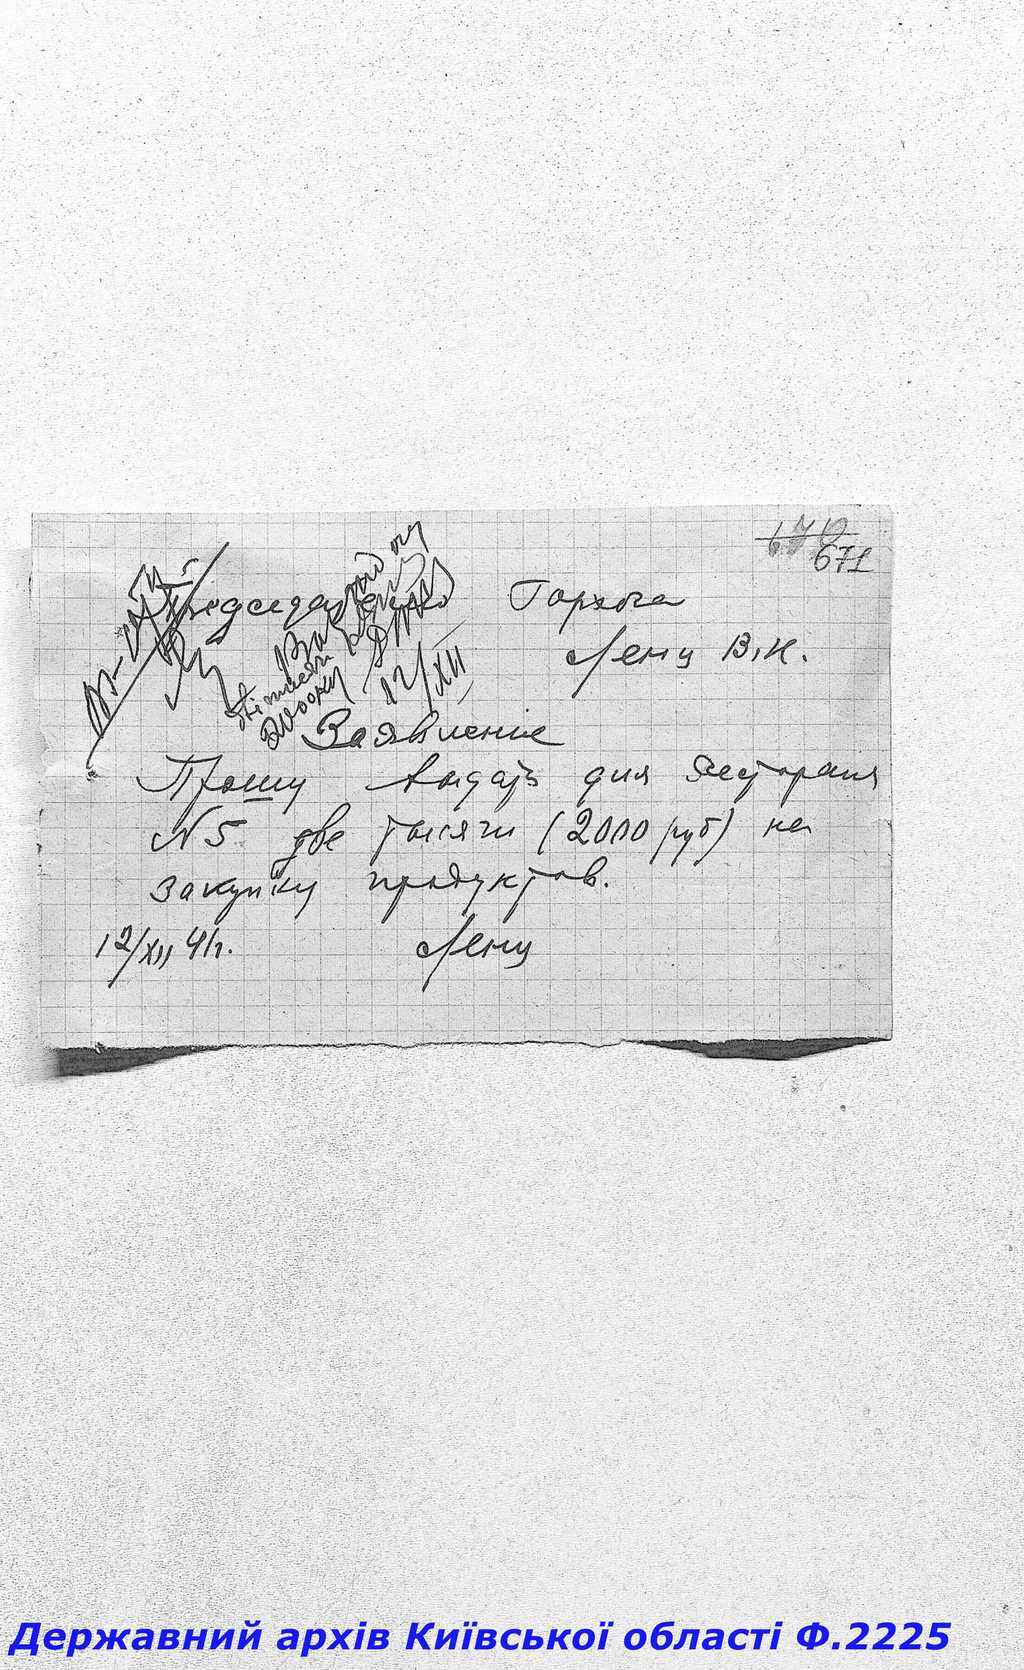 670
671
Председателю Горхоза
Ленц В.К.
12/XII
Заявление
Прошу выдать для Ресторана
N 5 две тысячи (2000 руб) на
закупку продуктов.
12/XII 41г. Ленц
Державний архів Київської області Ф.2225